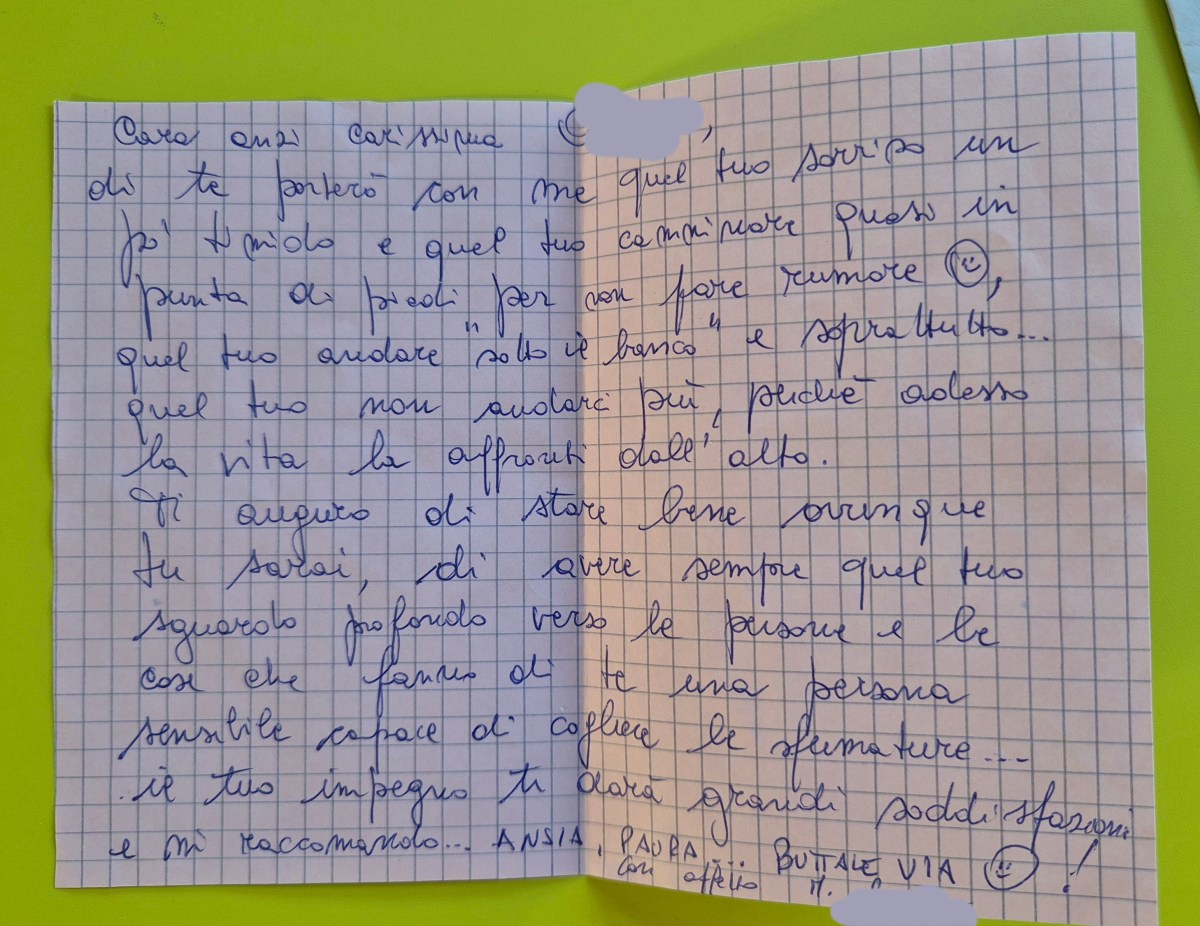 Cara anzi carissima
di te porterò con me quel tuo sorriso un
pò timido e quel tuo camminare quasi in
punta di piedi per non fare rumore ,
quel tuo andare "sotto il banco" e soprattutto...
quel tuo non andarci più, perchè adesso
la vita la affronti dall'alto.
Ti auguro di stare bene ovunque
tu sarai, di avere sempre quel tuo
sguardo profondo verso le persone e le
cose che fanno di te una persona
sensibile capace di cogliere le sfumature....
il tuo impegno ti darà grandi soddisfazioni
e mi raccomando... ANSIA, PAURA... BUTTALE VIA !
con affetto